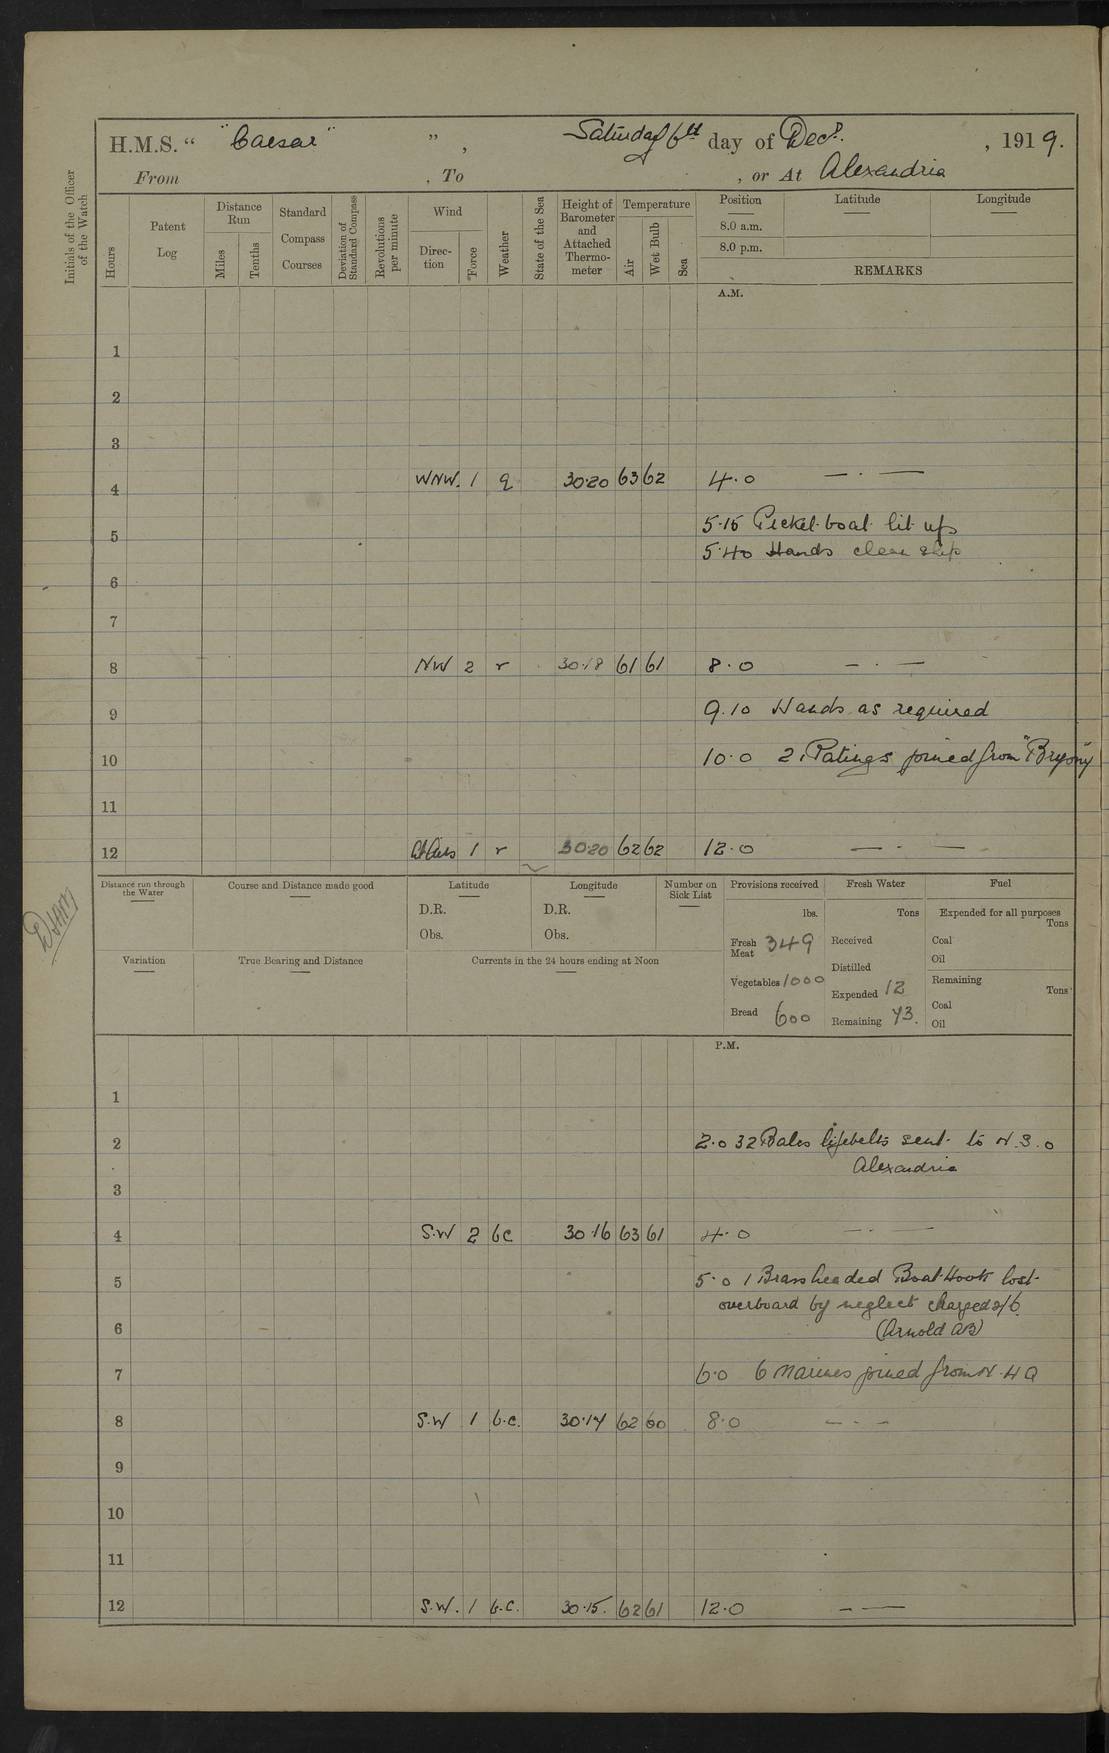 H.M.S. “ "Caesar" ” , Saturday 6th day of Decr. , 1919.
From , To , or At Alexandria
Initials of the Officer of the Watch
Hours
Patent Log
Distance Run
Miles
Tenths
Standard Compass Courses
Deviation of Standard Compass
Revolutions per minute
Wind
Direction
Force
Weather
State of the Sea
Height of Barometer and Attached Thermometer
Temperature
Air
Wet Bulb
Sea
Position Latitude Longitude
8.0 a.m.
8.0 p.m.
REMARKS
A.M.
1
2
3
4 WNW. 1 q 30.20 63 62 4.0 — · —
5.15 Picket boat lit up
5 5.40 Hands clean ship
6
7
8 NW 2 r 30.18 61 61 8.0 — · —
9 9.10 Hands as required
10 10.0 2 Ratings joined from "Bryony"
11
12 1 r 30.20 62 62 12.0 — · —
Distance run through the Water
Course and Distance made good
Latitude
D.R.
Obs.
Longitude
D.R.
Obs.
Number on Sick List
Provisions received
lbs.
Fresh Meat 349
Vegetables 1000
Bread 600
Fresh Water
Tons
Received
Distilled
Expended 12
Remaining 73.
Fuel
Expended for all purposes
Tons
Coal
Oil
Remaining
Tons
Coal
Oil
Variation
True Bearing and Distance
Currents in the 24 hours ending at Noon
P.M.
1
2 2.0 32 Bales lifebelts sent to N.S.O
Alexandria
3
4 S.W 2 bc 30.16 63 61 4.0 — · —
5 5.0 1 Brass headed Boat Hook lost
overboard by neglect charged 2/6.
6 (Arnold AB)
7 6.0 6 Marines joined from N.H.Q
8 S.W 1 b.c. 30.17 62 60 8.0 — · —
9
10
11
12 S.W. 1 b.c. 30.15. 62 61 12.0 — —